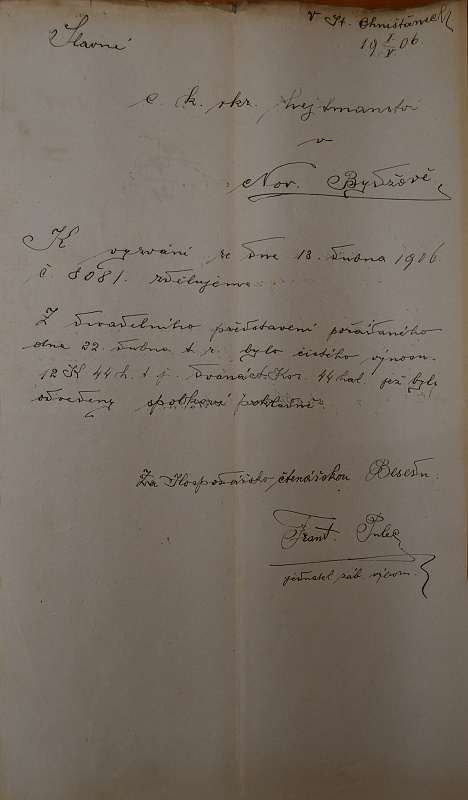 V St. Ohnišťanech
19 1/V 06.
Slavné
c. k. okr. hejtmanství
v
Nov. Bydžově.
K vyzvání ze dne 13. dubna 1906.
č. 8081. sdělujeme
Z divadelního představení pořádaného
dne 22. dubna t. r. bylo čistého výnosu.
12 K 44 h. t. j. dvanáct Kor. 44 hal. jež byly
odvedeny spolkové pokladně
Za Hospodářsko čtenářskou Besedu:
Frant.
jednatel záb. výboru.